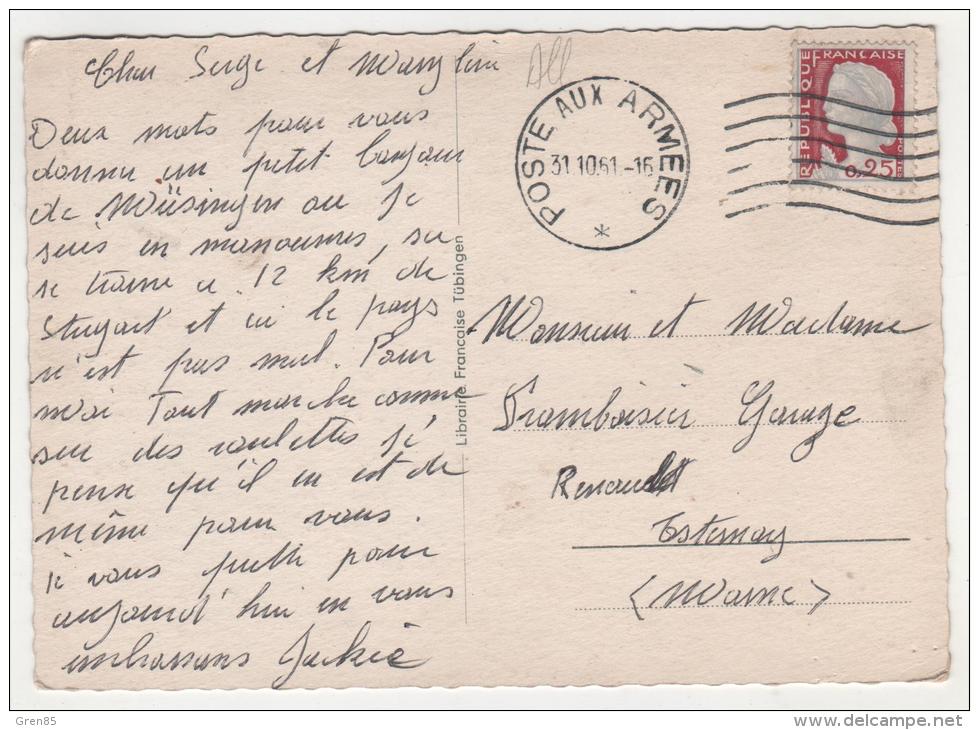 Cher Serge et Marylin
Deux mots pour vous
donner un petit bonjour
de Müsingen ou je
suis en manoeuvres, sa
se trouve a 12 km de
Stugart et ici le pays
n'est pas mal. Pour
moi Tout marche comme
sur des roulettes j'é
pense qu'il en est de
même pour vous.
je vous quitte pour
aujourd'hui en vous
embrassans Jackie
All
POSTE AUX ARMEES
31.10.61.-16
*
REPUBLIQUE FRANCAISE
0,25
Librairie Francaise Tübingen
Monsieur et Madame
Framboisier Garage
Renault
Esternay
(Marne)
Gren85
delcampe.net